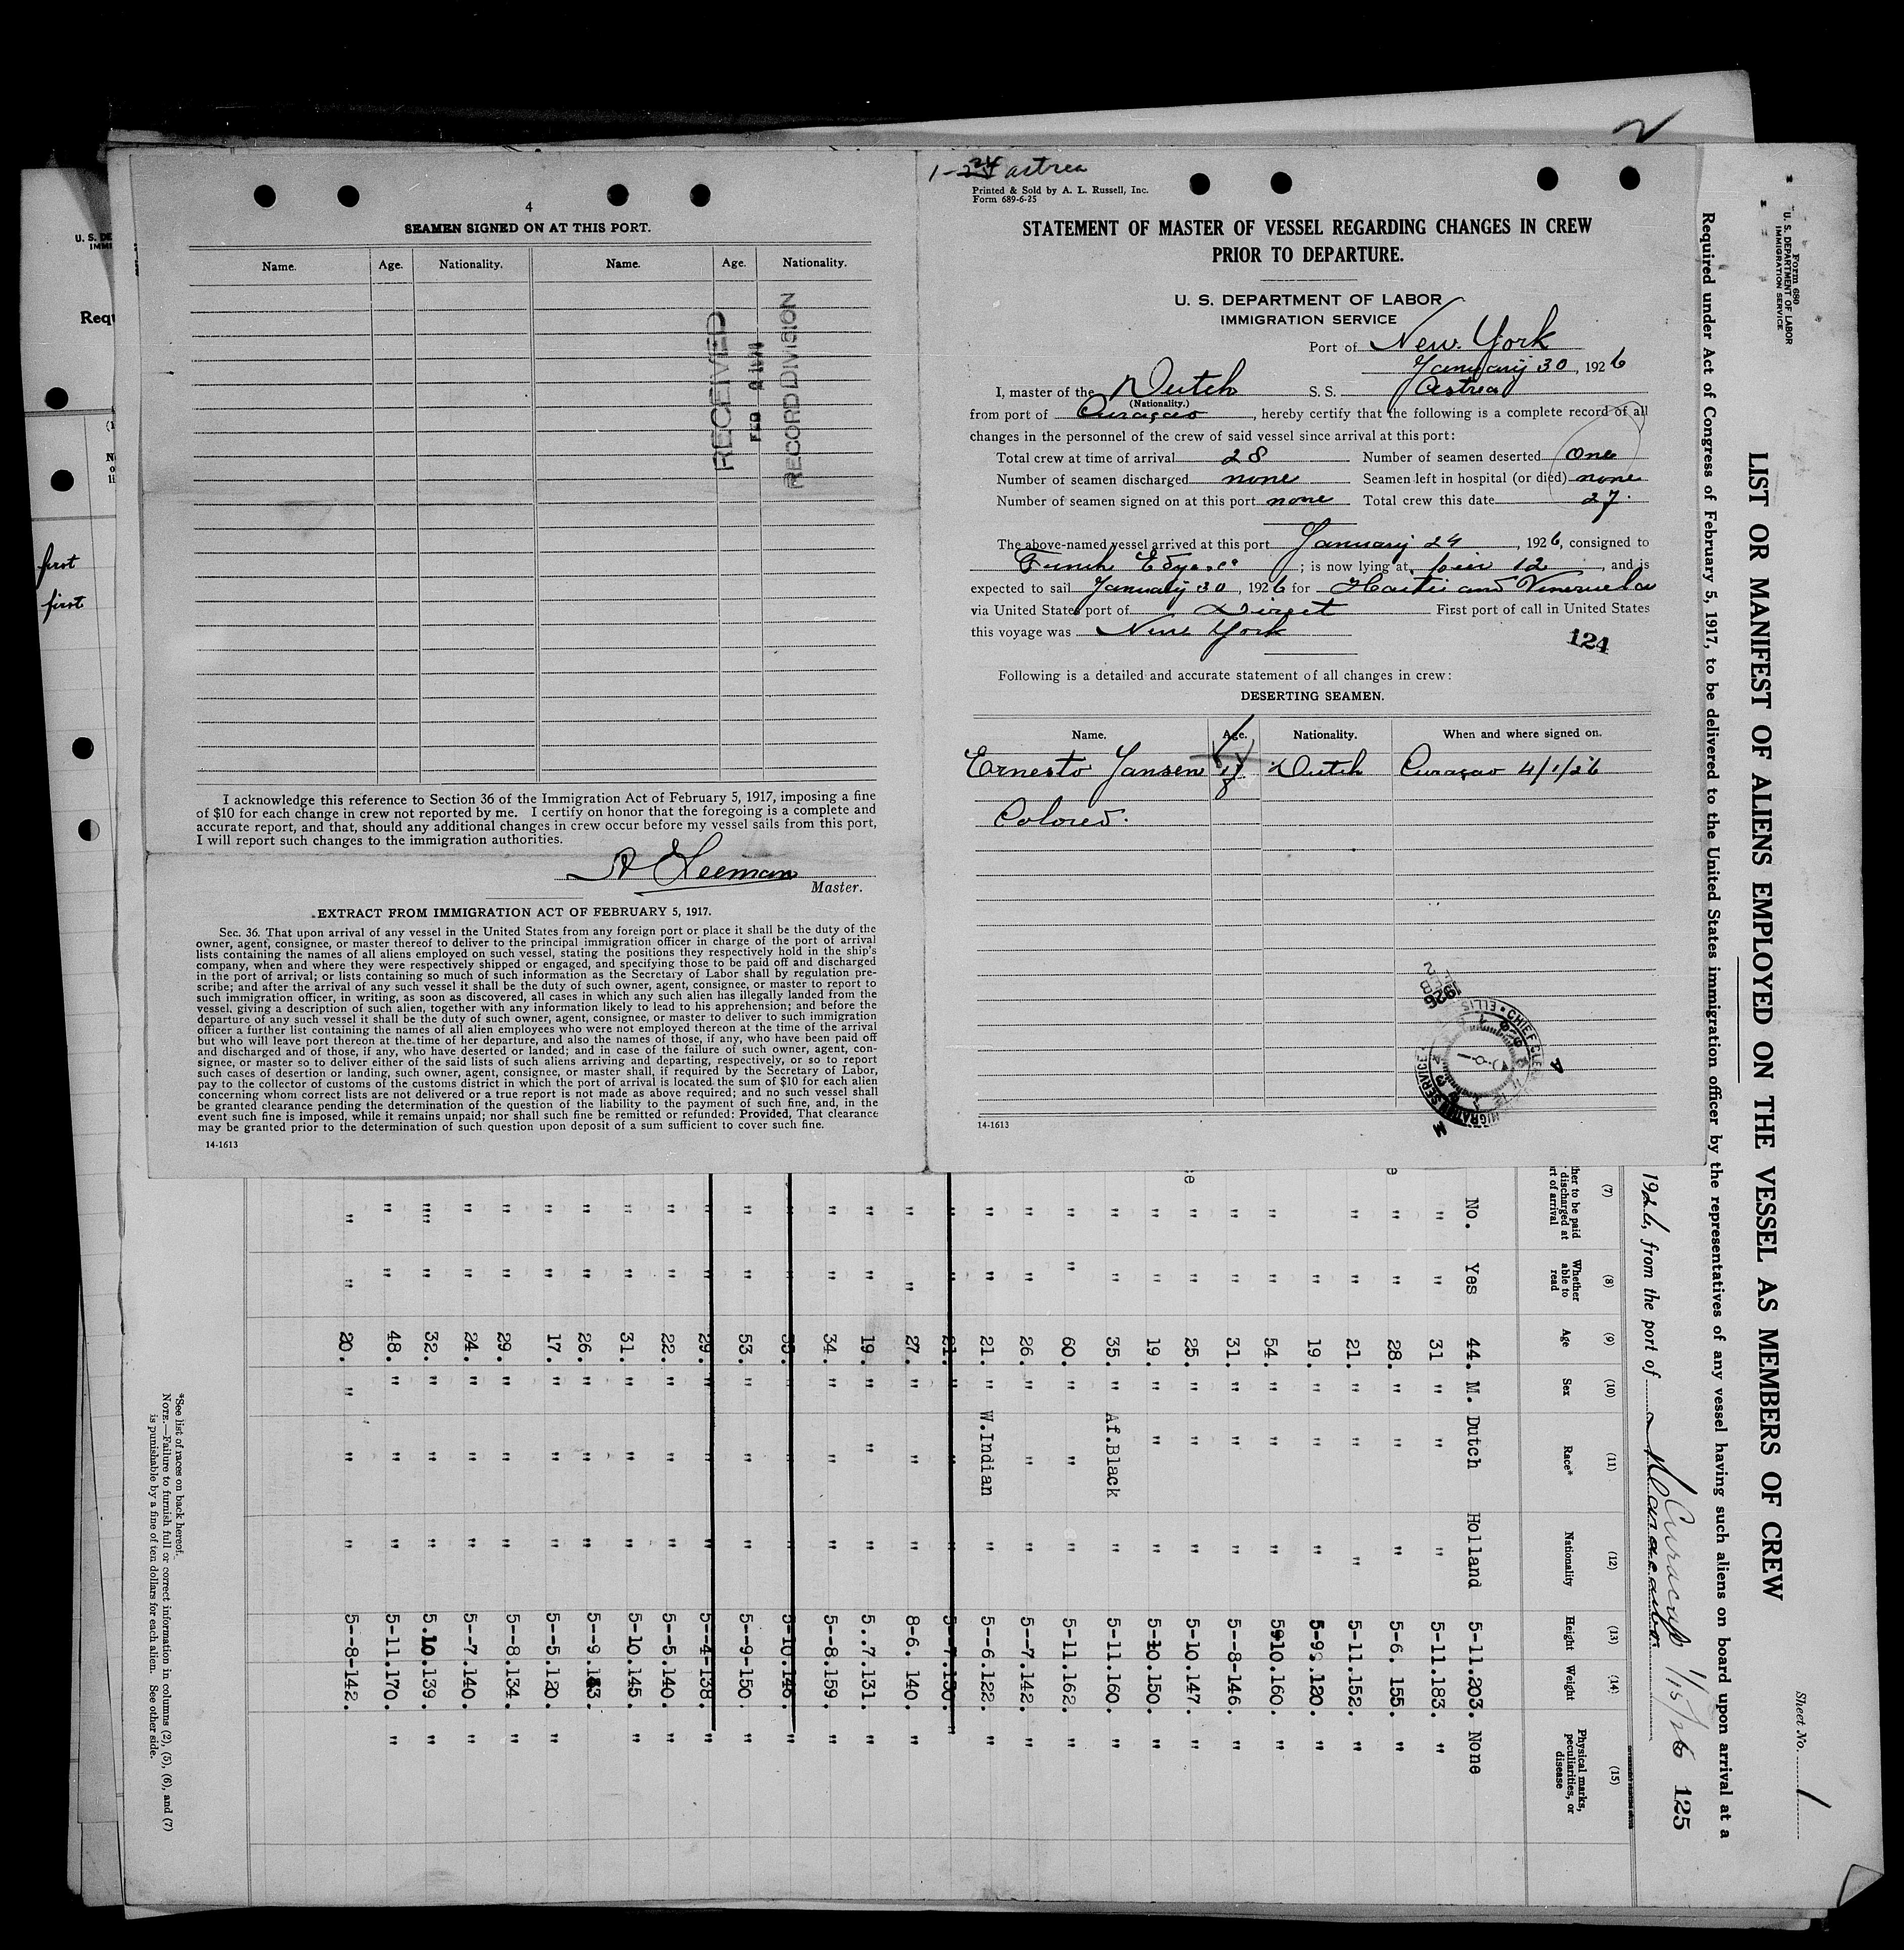 4
SEAMEN SIGNED ON AT THIS PORT.
Name. Age. Nationality. Name. Age. Nationality.
RECEIVED
FEB
RECORD DIVISION
I acknowledge this reference to Section 36 of the Immigration Act of February 5, 1917, imposing a fine
of $10 for each change in crew not reported by me. I certify on honor that the foregoing is a complete and
accurate report, and that, should any additional changes in crew occur before my vessel sails from this port,
I will report such changes to the immigration authorities.
Master.
EXTRACT FROM IMMIGRATION ACT OF FEBRUARY 5, 1917.
Sec. 36. That upon arrival of any vessel in the United States from any foreign port or place it shall be the duty of the
owner, agent, consignee, or master thereof to deliver to the principal immigration officer in charge of the port of arrival
lists containing the names of all aliens employed on such vessel, stating the positions they respectively hold in the ship's
company, when and where they were respectively shipped or engaged, and specifying those to be paid off and discharged
in the port of arrival; or lists containing so much of such information as the Secretary of Labor shall by regulation pre-
scribe; and after the arrival of any such vessel it shall be the duty of such owner, agent, consignee, or master to report to
such immigration officer, in writing, as soon as discovered, all cases in which any such alien has illegally landed from the
vessel, giving a description of such alien, together with any information likely to lead to his apprehension; and before the
departure of any such vessel it shall be the duty of such owner, agent, consignee, or master to deliver to such immigration
officer a further list containing the names of all alien employees who were not employed thereon at the time of the arrival
but who will leave port thereon at the time of her departure, and also the names of those, if any, who have been paid off
and discharged and of those, if any, who have deserted or landed; and in case of the failure of such owner, agent, con-
signee, or master so to deliver either of the said lists of such aliens arriving and departing, respectively, or so to report
such cases of desertion or landing, such owner, agent, consignee, or master shall, if required by the Secretary of Labor,
pay to the collector of customs of the customs district in which the port of arrival is located the sum of $10 for each alien
concerning whom correct lists are not delivered or a true report is not made as above required; and no such vessel shall
be granted clearance pending the determination of the question of the liability to the payment of such fine, and, in the
event such fine is imposed, while it remains unpaid; nor shall such fine be remitted or refunded: Provided, That clearance
may be granted prior to the determination of such question upon deposit of a sum sufficient to cover such fine.
14-1613
1-24 Astrea
Printed & Sold by A. L. Russell, Inc.
Form 689-6-25
STATEMENT OF MASTER OF VESSEL REGARDING CHANGES IN CREW
PRIOR TO DEPARTURE.
U. S. DEPARTMENT OF LABOR
IMMIGRATION SERVICE
Port of New York
January 30, 1926
I, master of the Dutch S. S. Astrea
(Nationality.)
from port of Curaçao, hereby certify that the following is a complete record of all
changes in the personnel of the crew of said vessel since arrival at this port:
Total crew at time of arrival 28 Number of seamen deserted One
Number of seamen discharged none Seamen left in hospital (or died) none
Number of seamen signed on at this port none Total crew this date 27.
The above-named vessel arrived at this port January 24, 1926, consigned to
Funch Edye & Co; is now lying at pier 12, and is
expected to sail January 30, 1926 for Haiti and Venezuela
via United States port of Direct First port of call in United States
this voyage was New York
124
Following is a detailed and accurate statement of all changes in crew:
DESERTING SEAMEN.
Name. Age. Nationality. When and where signed on.
Ernesto Jansen Dutch Curaçao 4/1/26
Colored.
1926
14-1613
first
first
Sheet No. 1
Form 680
U. S. DEPARTMENT OF LABOR
IMMIGRATION SERVICE
LIST OR MANIFEST OF ALIENS EMPLOYED ON THE VESSEL AS MEMBERS OF CREW
Required under Act of Congress of February 5, 1917, to be delivered to the United States immigration officer by the representatives of any vessel having such aliens on board upon arrival at a
125
1926, from the port of Maracaibo. Curacao 1/15/26
(7) (8) (9) (10) (11) (12) (13) (14) (15)
ther to be paid discharged at rt of arrival Whether able to read Age Sex Race* Nationality Height Weight Physical marks, peculiarities, or disease
No. Yes 44. M. Dutch Holland 5-11.203. None
" " 31 " " " 5-11.183. "
" " 28. " " " 5-6. 155. "
" " 21. " " " 5-11.152. "
" 19. " " " 5-9.120. "
" " 54. " " " 5-10.160. "
" " 31. " " " 5--8-146. "
" " 25. " " " 5-10.147. "
" " 19. " " " 5-10.150. "
" " 35. " Af.Black " 5-11.160. "
" " 60. " " " 5-11.162. "
" " 26. " " " 5--7.142. "
" " 21. " W.Indian " 5--6.122. "
" " 21. " " " 5--7.130. "
" " 27. " " " 8-6. 140. "
" " 19. " " " 5..7.131. "
" " 34. " " " 5--8.159. "
" " 35. " " " 5-10.146. "
" " 53. " " " 5--9-150. "
" " 29. " " " 5--4-138. "
" " 22. " " " 5--5.140. "
" " 31. " " " 5-10.145. "
" " 26. " " " 5--9.143. "
" " 17. " " " 5--5.120. "
" " 29. " " " 5--8.134. "
" " 24. " " " 5--7.140. "
" " 32. " " " 5.10.139. "
" " 48. " " " 5-11.170. "
" " 20. " " " 5--8-142.
*See list of races on back hereof.
NOTE.—Failure to furnish full or correct information in columns (2), (5), (6), and (7)
is punishable by a fine of ten dollars for each alien. See other side.